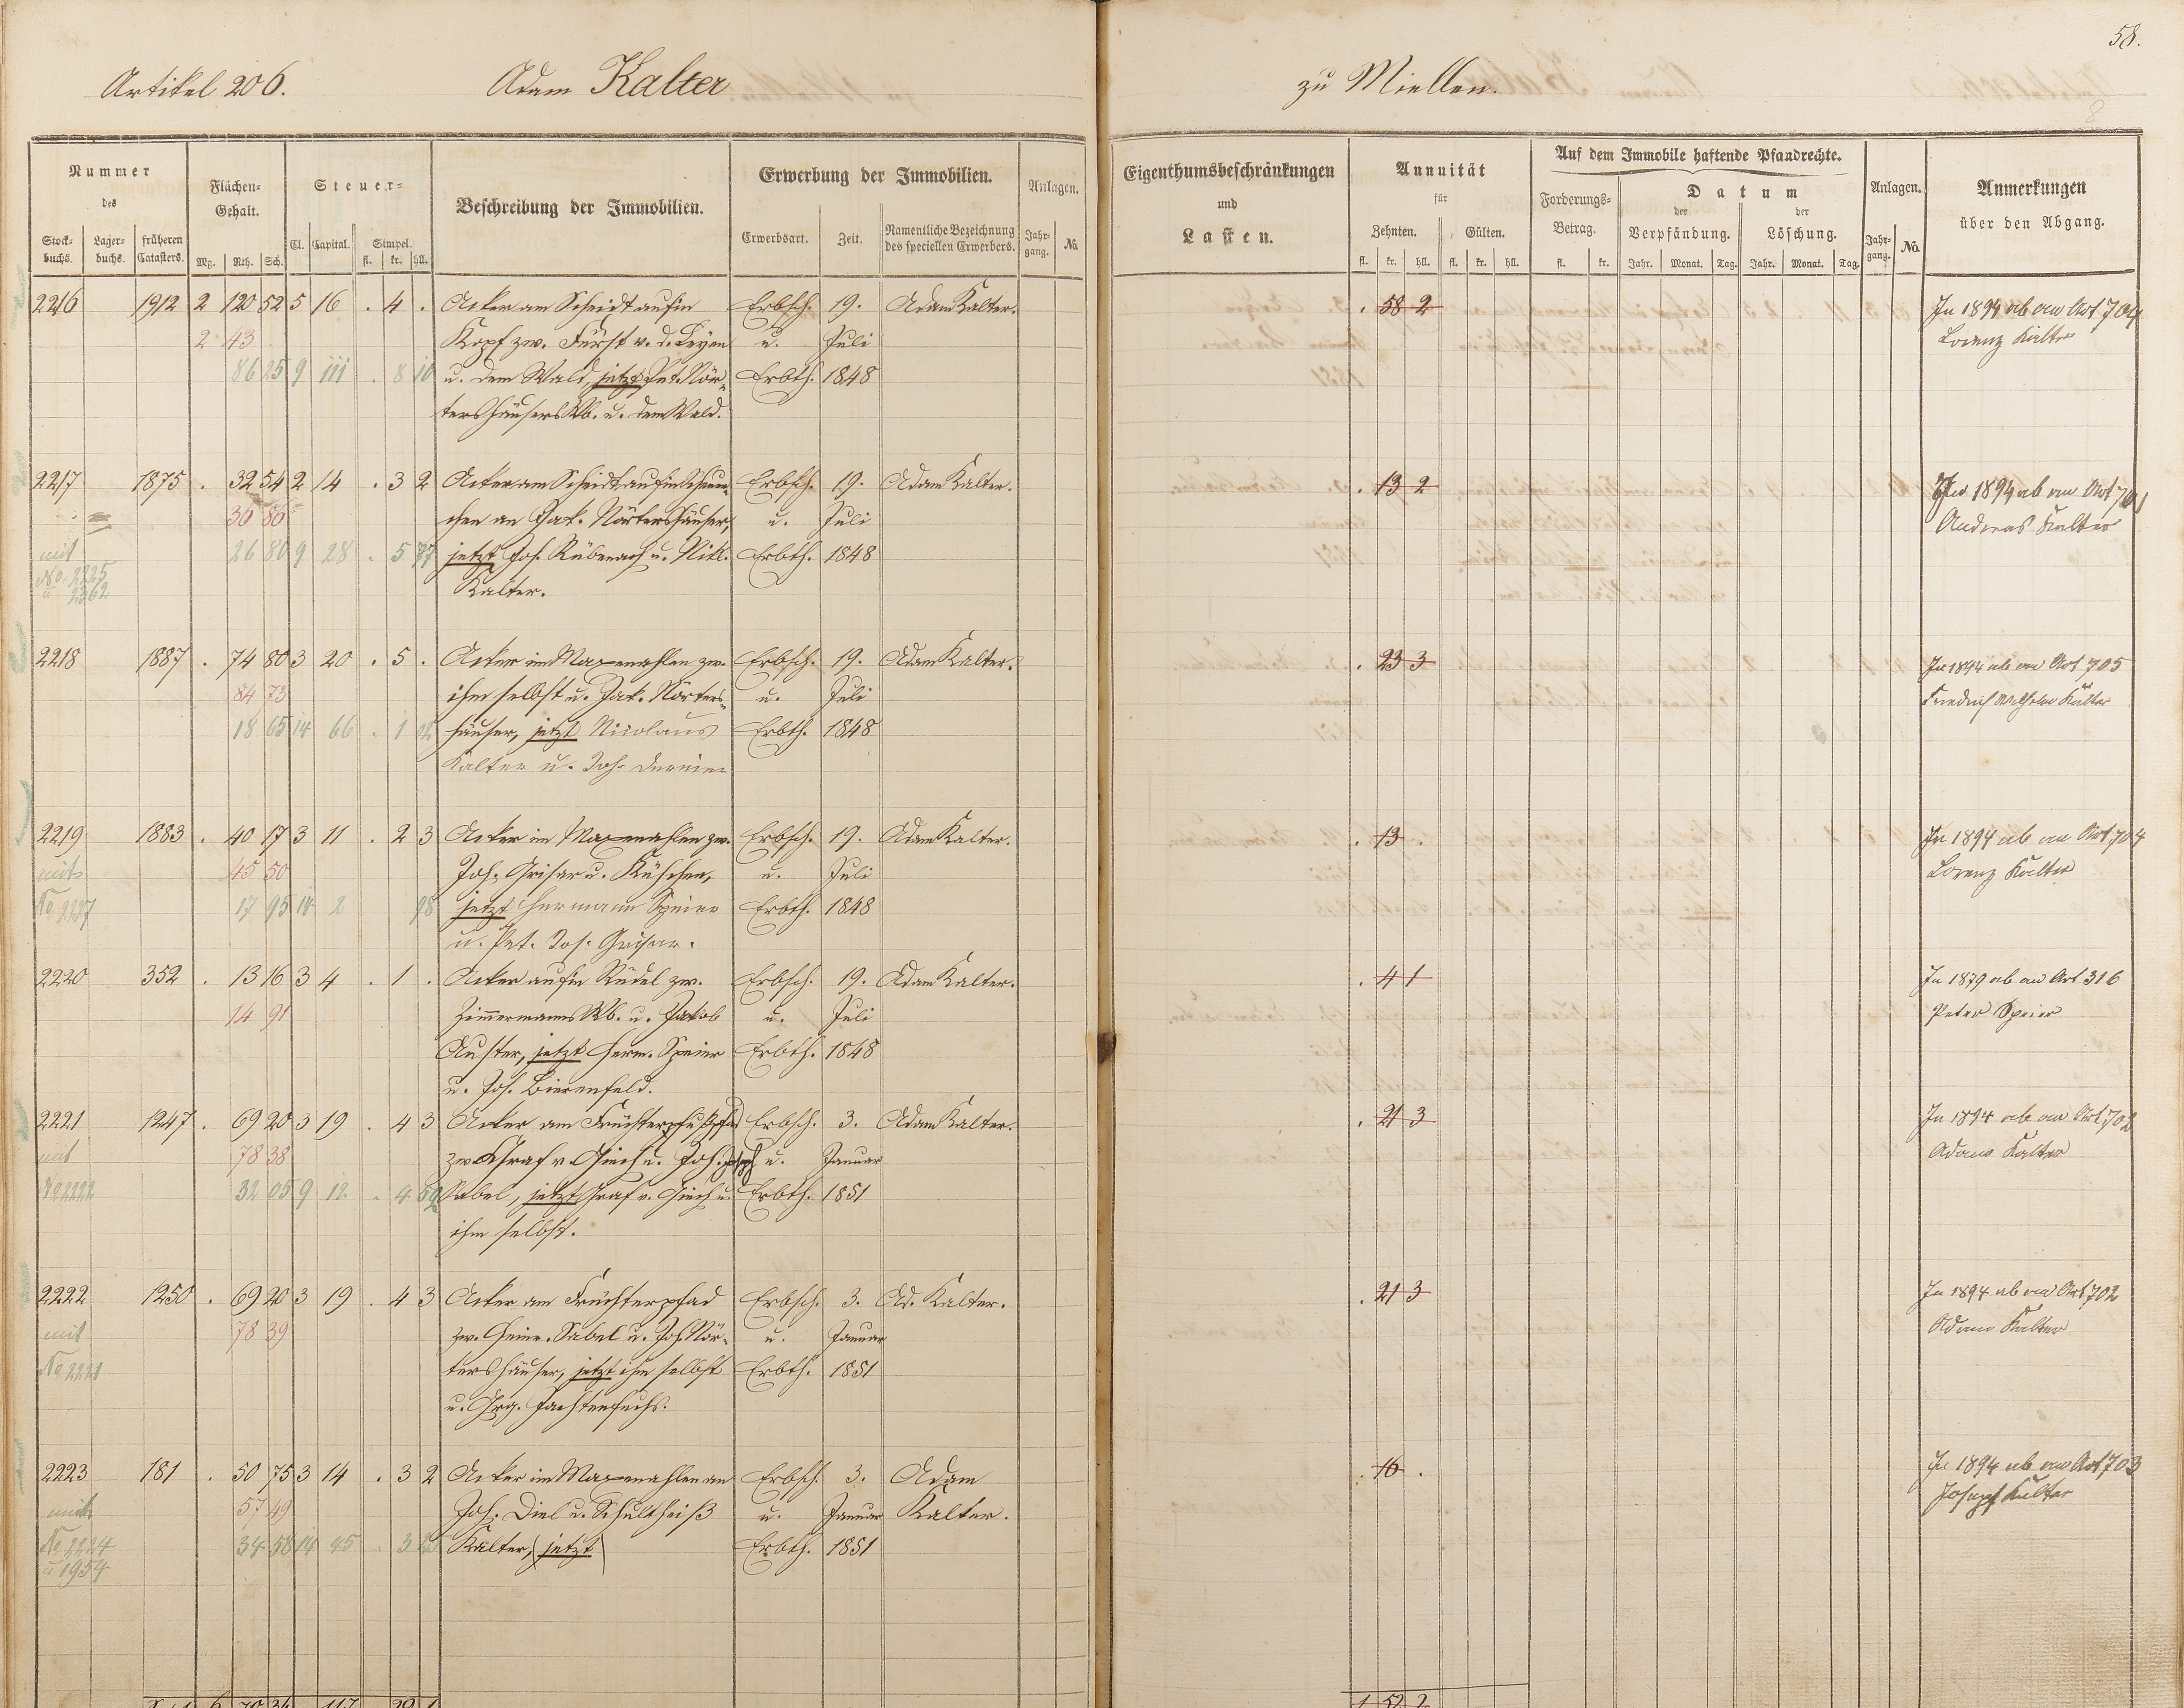 58.
Artikel 206. Adam Kalter zu Miellen.
Nummer des
Stockbuchs. Lagerbuchs. früheren Catasters.
Flächen-Gehalt.
Mg. Rth. Sch.
Steuer-
Cl. Capital. Simpel.
fl. kr. hll.
Beschreibung der Immobilien.
Erwerbung der Immobilien.
Erwerbsart. Zeit. Namentliche Bezeichnung des speciellen Erwerbers.
Anlagen.
Jahrgang. No.
Eigenthumsbeschränkungen
und
Lasten.
Annuität
für
Zehnten. Gülten.
fl. kr. hll. fl. kr. hll.
Auf dem Immobile haftende Pfandrechte.
Forderungs-Betrag.
fl. kr.
Datum
der Verpfändung. der Löschung.
Jahr. Monat. Tag. Jahr. Monat. Tag.
Anlagen.
Jahrgang. No.
Anmerkungen
über den Abgang.
2216 1912 2 120 52 5 16 . 4 . Acker am Scheidt aufm Erbsch. 19. Adam Kalter. . 58 2 In 1894 ab an Art 704
2 43 Kopf zw. Fürst v. d. Leyen u. Juli Lorenz Kalter
86 25 9 111 . 8 10 u. dem Wald, jetzt Pet. Nör- Erbth. 1848
tershäusers Wb. u. dem Wald.
2217 1875 . 32 54 2 14 . 3 2 Acker am Scheidt aufm Erbsch. 19. Adam Kalter. . 13 2 In 1894 ab an Art 701
36 86 chen an Jak. Nörtershäuser, u. Juli Andreas Kalter
mit 26 80 9 28 . 5 77 jetzt Joh. Rübenach u. Nikl. Erbth. 1848
No. 2225
u 2362 Kalter.
2218 1887 . 74 80 3 20 . 5 . Acker im Maxenahlen zw. Erbsch. 19. Adam Kalter. . 23 3 In 1894 ab an Art 705
84 73 ihm selbst u. Jak. Nörters- u. Juli Friedrich Wilhelm Kalter
18 65 14 66 . 1 häuser, jetzt Nicolaus Erbth. 1848
Kalter u. Joh.
2219 1883 . 40 17 3 11 . 2 3 Acker im Maxenahlen zw. Erbsch. 19. Adam Kalter. . 13 . In 1894 ab an Art 704
mit 45 50 Joh. Grisar u. u. Juli Lorenz Kalter
No 2227 17 95 14 2 98 jetzt Hermann Speier Erbth. 1848
u. Pet. Jos. Grisar.
2220 352 . 13 16 3 4 . 1 . Acker aufm Rüdel zw. Erbsch. 19. Adam Kalter. . 4 1 In 1879 ab an Art 316
14 91 Zimmermanns Wb. u. Jakob u. Juli Peter Speier
Auster, jetzt Herm. Speier Erbth. 1848
u. Jos. Bierenfeld.
2221 1247 . 69 20 3 19 . 4 3 Acker am Erbsch. 3. Adam Kalter. . 21 3 In 1894 ab an Art 702
mit 78 38 zw. Graf v. Giech u. Joh. Joseph u. Januar Adam Kalter
No 2222 32 05 9 12 . 4 Sabel, jetzt Graf v. Giech u. Erbth. 1851
ihm selbst.
2222 1250 . 69 20 3 19 . 4 3 Acker am Früchterpfad Erbsch. 3. Ad. Kalter. . 21 3 In 1894 ab an Art 702
mit 78 39 zw. Heinr. Sabel u. Joh. Nör- u. Januar Adam Kalter
No 2221 tershäuser, jetzt ihm selbst Erbth. 1851
u. Grg. Fachtenfuchs.
2223 181 . 50 75 3 14 . 3 2 Acker im Maxenahlen an Erbsch. 3. Adam . 16 . In 1894 ab an Art 703
mit 57 49 Joh. Diel u. Schultheiß u. Januar Kalter. Joseph Kalter
No 2224 34 58 14 45 . 3 Kalter, (jetzt) Erbth. 1851
u 1954